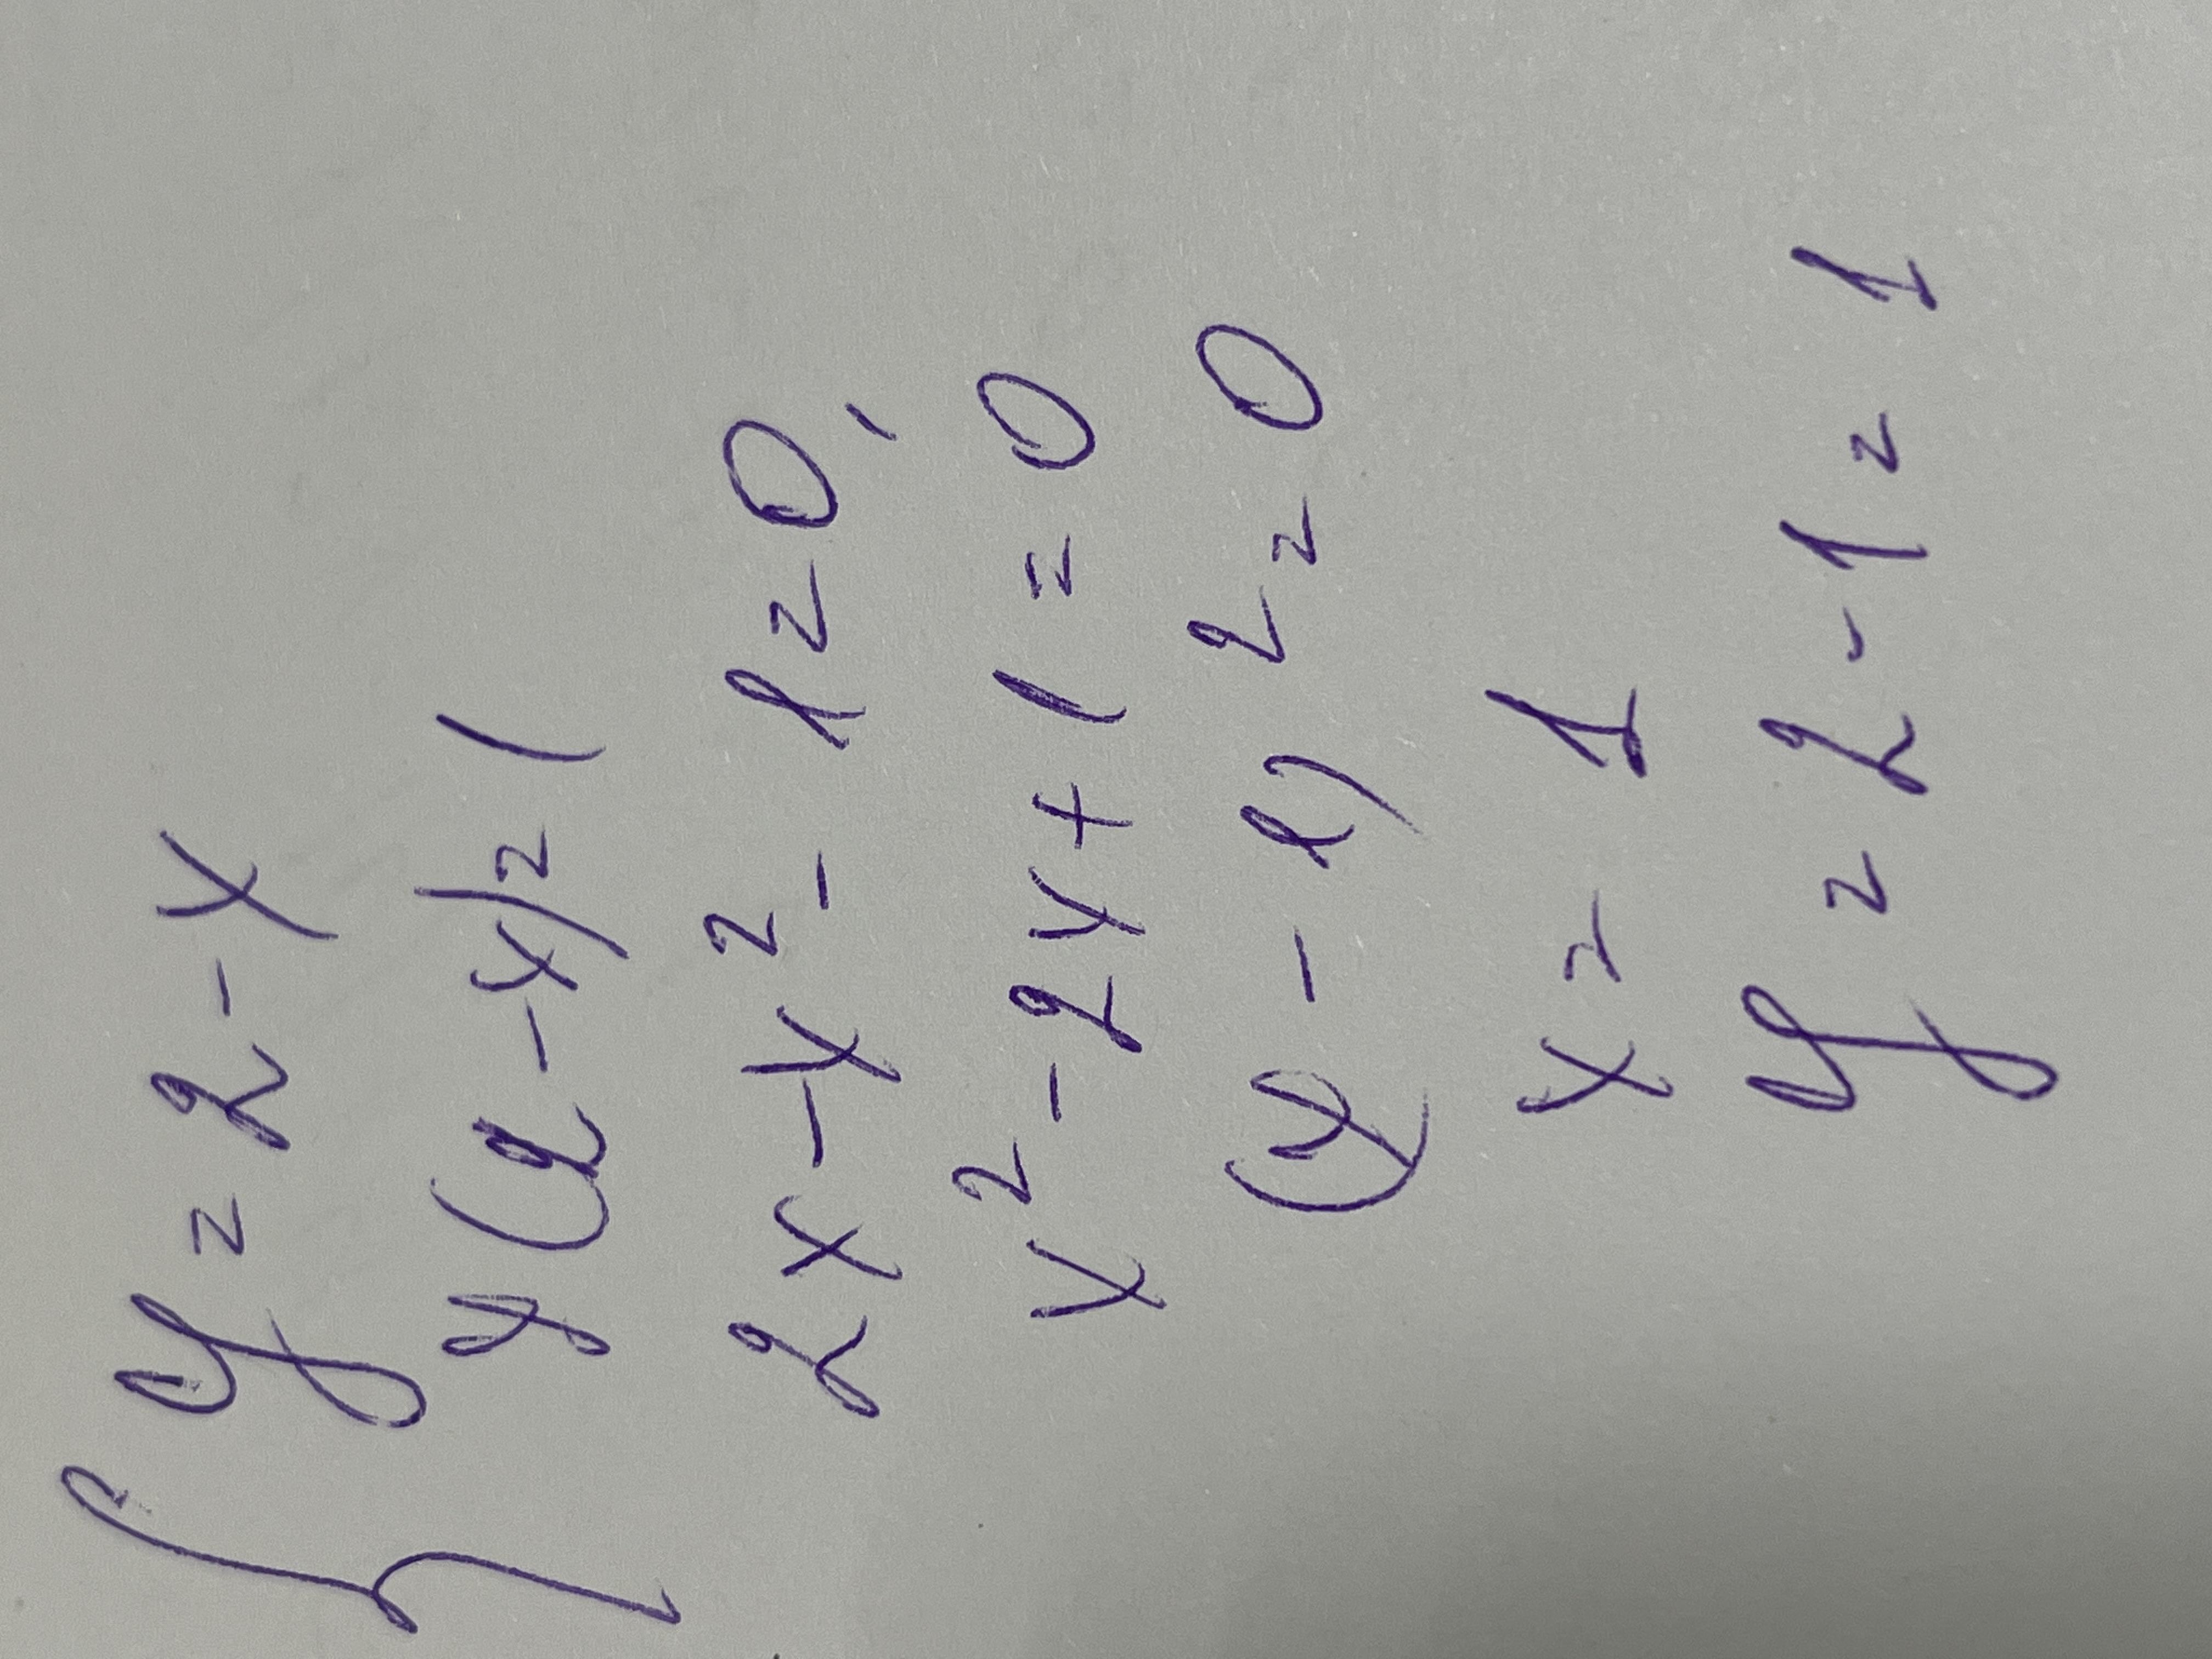 { y = 2 - x
x(2 - x) = 1
2x - x² - 1 = 0,
x² - 2x + 1 = 0
(x - 1)² = 0
x = 1
y = 2 - 1 = 1